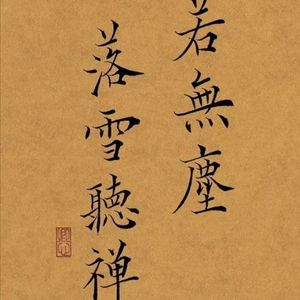 若無塵
落雪聽禅